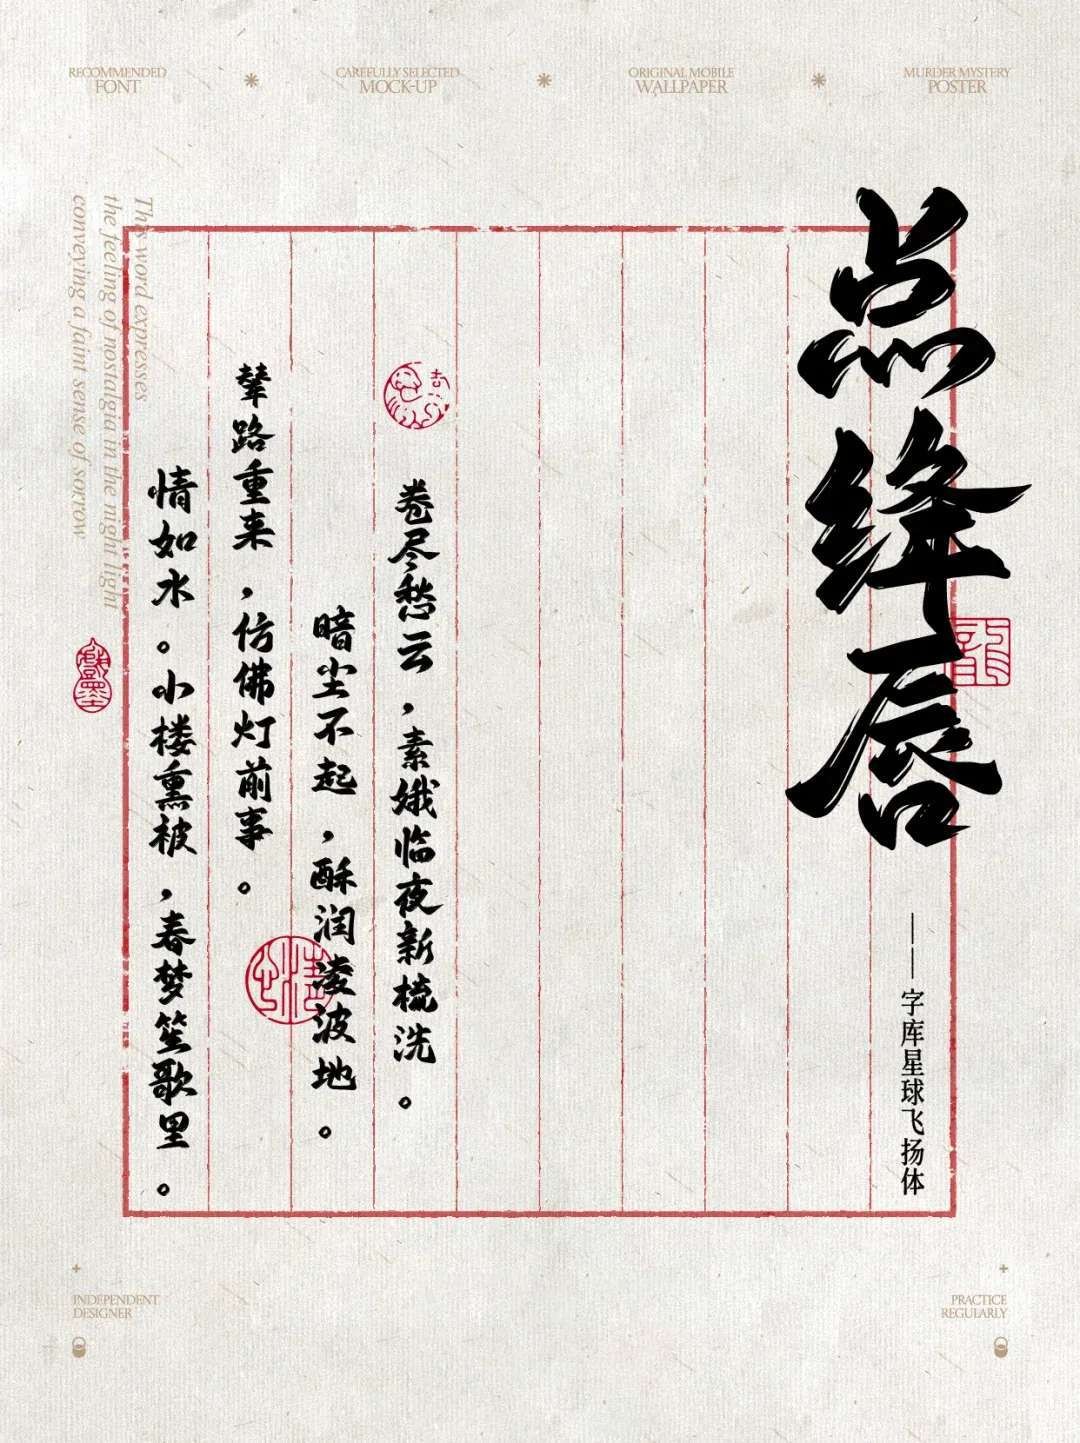 RECOMMENDED
FONT
CAREFULLY SELECTED
MOCK-UP
ORIGINAL MOBILE
WALLPAPER
MURDER MYSTERY
POSTER
点绛唇
——字库星球飞扬体
卷尽愁云，素娥临夜新梳洗。
暗尘不起，酥润凌波地。
辇路重来，仿佛灯前事。
情如水。小楼熏被，春梦笙歌里。
This word expresses
the feeling of nostalgia in the night light
conveying a faint sense of sorrow
吉
INDEPENDENT
DESIGNER
PRACTICE
REGULARLY